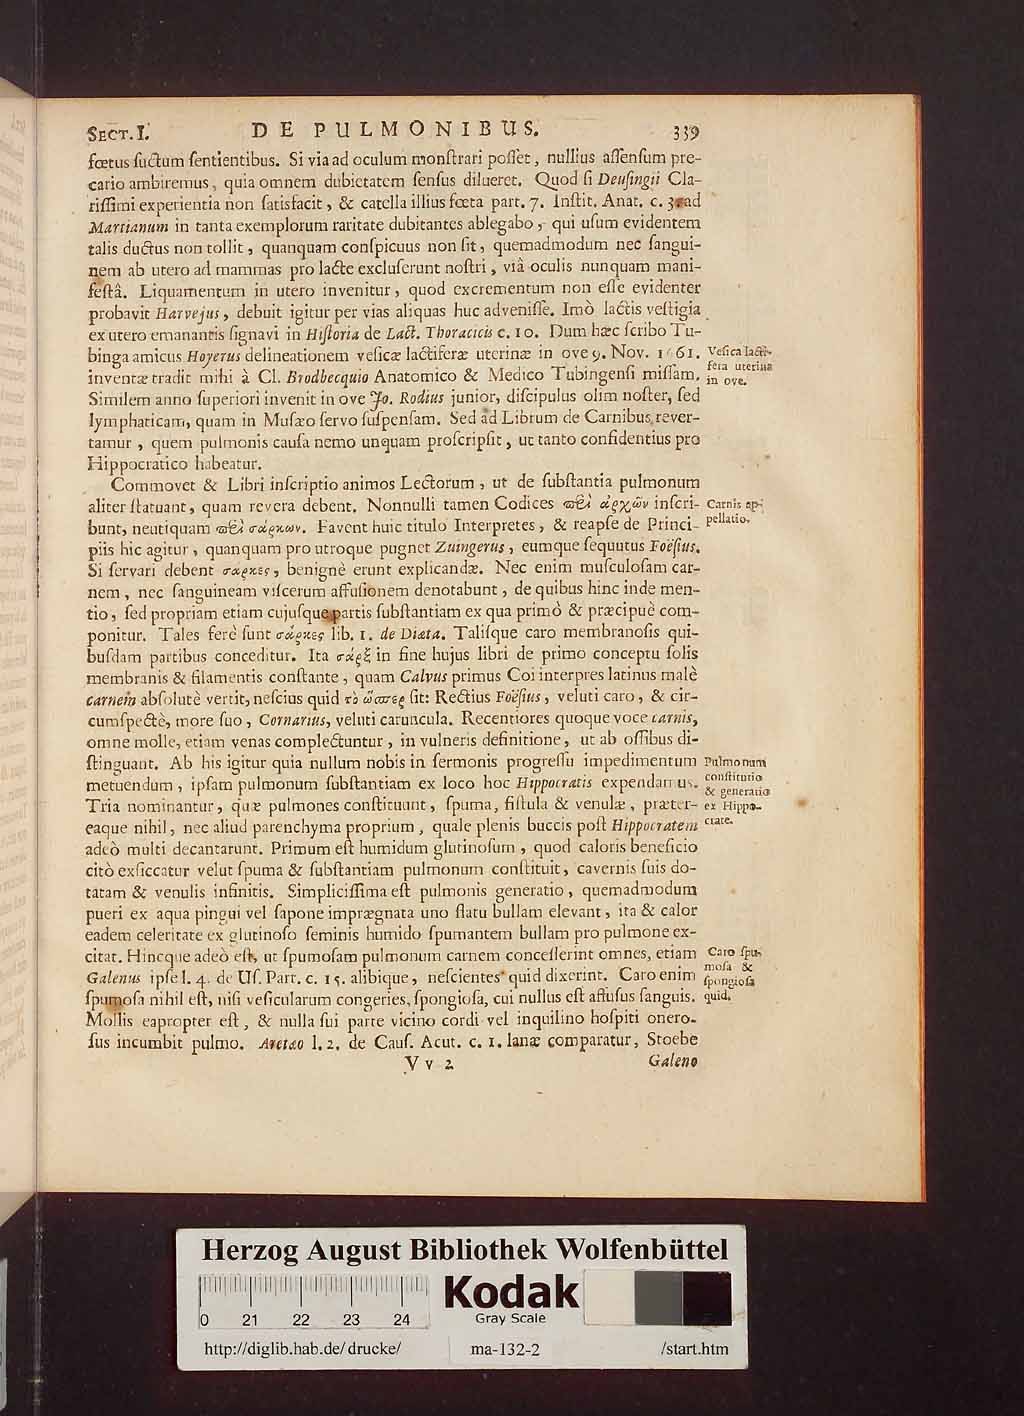 SECT. I. DE PULMONIBUS. 339
fœtus ſuctum ſentientibus. Si via ad oculum monſtrari poſſet, nullius aſſenſum pre-
cario ambiremus, quia omnem dubietatem ſenſus dilueret. Quod ſi Deuſingii Cla-
riſſimi experientia non ſatisfacit, & catella illius fœta part. 7. Inſtit. Anat. c. 3. ad
Martianum in tanta exemplorum raritate dubitantes ablegabo, qui uſum evidentem
talis ductus non tollit, quanquam conſpicuus non ſit, quemadmodum nec ſangui-
nem ab utero ad mammas pro lacte excluſerunt noſtri, viâ oculis nunquam mani-
feſtâ. Liquamentum in utero invenitur, quod excrementum non eſſe evidenter
probavit Harvejus, debuit igitur per vias aliquas huc adveniſſe. Imò lactis veſtigia
ex utero emanantis ſignavi in Hiſtoria de Lact. Thoracicis c. 10. Dum hæc ſcribo Tu-
binga amicus Hoyerus delineationem veſicæ lactiferæ uterinæ in ove 9. Nov. 1661.
inventæ tradit mihi à Cl. Brodbecquio Anatomico & Medico Tubingenſi miſſam.
Veſica lacti-
fera uterina
in ove.
Similem anno ſuperiori invenit in ove Jo. Rodius junior, diſcipulus olim noſter, ſed
lymphaticam, quam in Muſæo ſervo ſuſpenſam. Sed ad Librum de Carnibus rever-
tamur, quem pulmonis cauſa nemo unquam proſcripſit, ut tanto confidentius pro
Hippocratico habeatur.
Commovet & Libri inſcriptio animos Lectorum, ut de ſubſtantia pulmonum
aliter ſtatuant, quam revera debent. Nonnulli tamen Codices περὶ ἀρχῶν inſcri-
bunt, neutiquam περὶ σάρκων. Favent huic titulo Interpretes, & reapſe de Princi-
Carnis ap-
pellatio.
piis hic agitur, quanquam pro utroque pugnet Zuingerus, eumque ſequutus Foëſius.
Si ſervari debent σάρκες, benignè erunt explicandæ. Nec enim muſculoſam car-
nem, nec ſanguineam viſcerum affuſionem denotabunt, de quibus hinc inde men-
tio, ſed propriam etiam cujuſque partis ſubſtantiam ex qua primò & præcipuè com-
ponitur. Tales ferè ſunt σάρκες lib. 1. de Diæta. Taliſque caro membranoſis qui-
buſdam partibus conceditur. Ita σάρξ in fine hujus libri de primo conceptu ſolis
membranis & filamentis conſtante, quam Calvus primus Coi interpres latinus malè
carnem abſolutè vertit, neſcius quid τὸ ὥσπερ ſit: Rectius Foëſius, veluti caro, & cir-
cumſpectè, more ſuo, Cornarius, veluti caruncula. Recentiores quoque voce carnis,
omne molle, etiam venas complectuntur, in vulneris definitione, ut ab oſſibus di-
ſtinguant. Ab his igitur quia nullum nobis in ſermonis progreſſu impedimentum
metuendum, ipſam pulmonum ſubſtantiam ex loco hoc Hippocratis expendamus.
Tria nominantur, quæ pulmones conſtituunt, ſpuma, fiſtula & venulæ, præter-
eaque nihil, nec aliud parenchyma proprium, quale plenis buccis poſt Hippocratem
Pulmonum
conſtitutio
& generatio
ex Hippo-
crate.
adeò multi decantarunt. Primum eſt humidum glutinoſum, quod caloris beneficio
citò exſiccatur velut ſpuma & ſubſtantiam pulmonum conſtituit, cavernis ſuis do-
tatam & venulis infinitis. Simpliciſſima eſt pulmonis generatio, quemadmodum
pueri ex aqua pingui vel ſapone imprægnata uno flatu bullam elevant, ita & calor
eadem celeritate ex glutinoſo ſeminis humido ſpumantem bullam pro pulmone ex-
citat. Hincque adeò eſt, ut ſpumoſam pulmonum carnem conceſſerint omnes, etiam
Galenus ipſe l. 4. de Uſ. Part. c. 15. alibique, neſcientes quid dixerint. Caro enim
ſpumoſa nihil eſt, niſi veſicularum congeries, ſpongioſa, cui nullus eſt affuſus ſanguis.
Caro ſpu-
moſa &
ſpongioſa
quid.
Mollis eapropter eſt, & nulla ſui parte vicino cordi vel inquilino hoſpiti onero-
ſus incumbit pulmo. Aretæo l. 2. de Cauſ. Acut. c. 1. lanæ comparatur, Stoebe
V v 2 Galeno
Herzog August Bibliothek Wolfenbüttel
0 21 22 23 24
Kodak
Gray Scale
http://diglib.hab.de/drucke/ ma-132-2 /start.htm